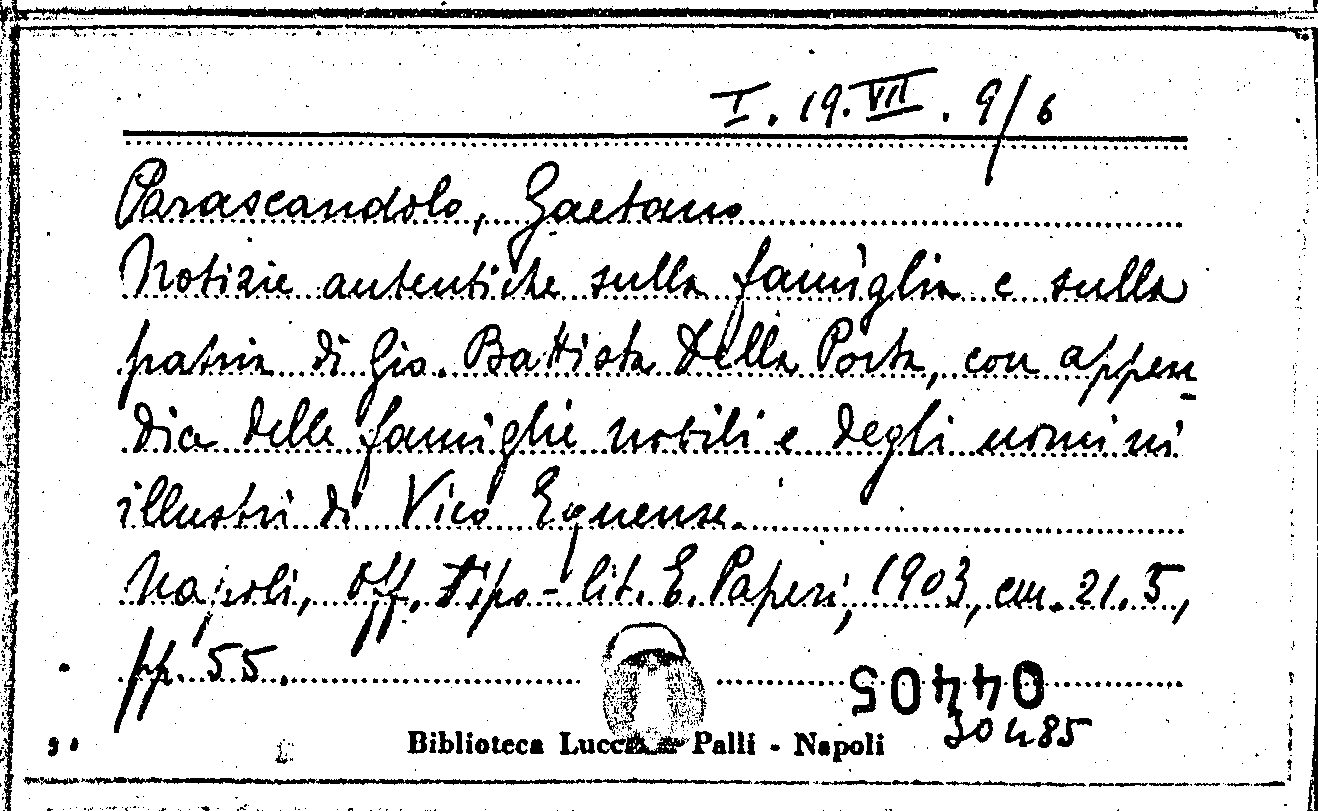 I. 19. VII. 9/6
Parascandolo, Gaetano
Notizie autentiche sulla famiglia e sulla
patria di Gio. Battista Della Porta, con appen-
dice delle famiglie nobili e degli uomini
illustri di Vico Equense.
Napoli, Off. Tipo-lit. E. Paperi, 1903, cm. 21.5,
pp. 55.
04405
30485
Biblioteca Palli - Napoli